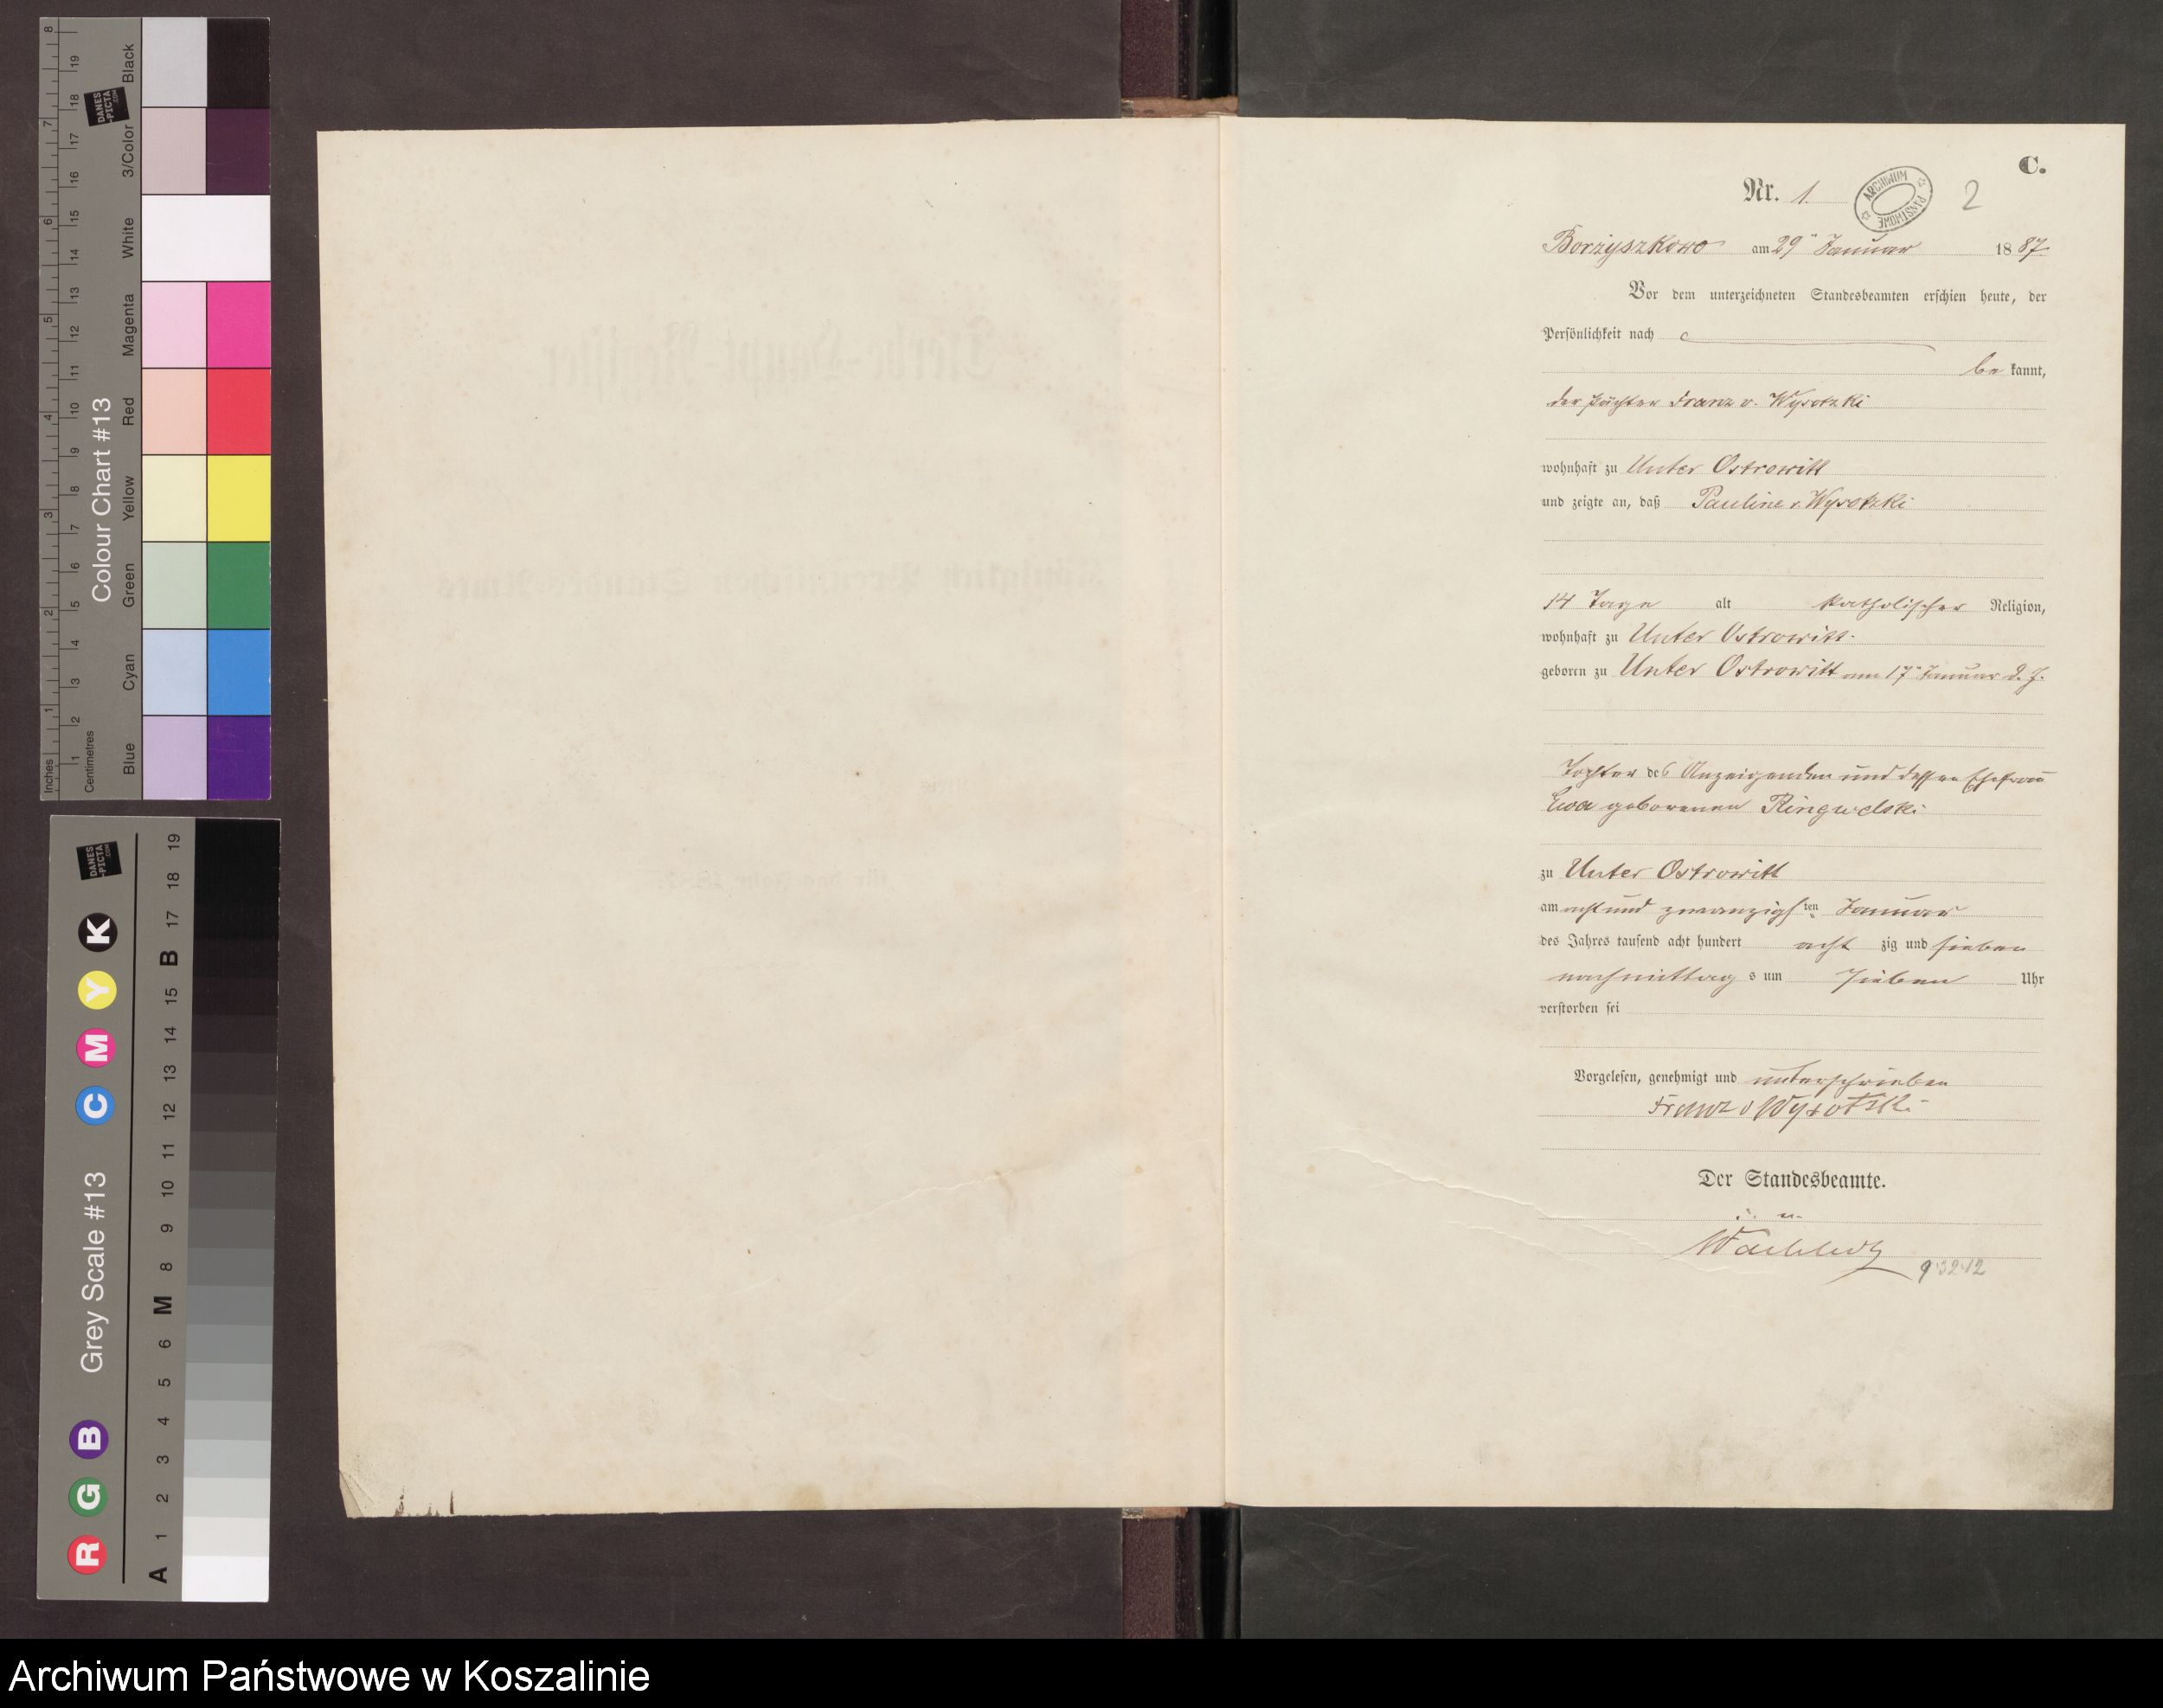 C.
Nr. 1.
ARCHIWUM PAŃSTWOWE
2
Borzyszkowo am 29ten Januar 1887
Vor dem unterzeichneten Standesbeamten erschien heute, der
Persönlichkeit nach
be kannt,
der Pächter Franz v. Wysotzki
wohnhaft zu Unter Ostrowitt
und zeigte an, daß Pauline v. Wysotzki
14 Tage alt katholischer Religion,
wohnhaft zu Unter Ostrowitt.
geboren zu Unter Ostrowitt am 17ten Januar d. J.
Tochter des Anzeigenden und dessen Ehefrau
Eva geborenen Ringwelski
zu Unter Ostrowitt
am acht und zwanzigsten Januar
des Jahres tausend acht hundert acht zig und sieben
nachmittag s um sieben Uhr
verstorben sei
Vorgelesen, genehmigt und unterschrieben
Franz v Wysotzki
Der Standesbeamte.
Inches
Centimetres
Colour Chart #13
Blue
Cyan
Green
Yellow
Red
Magenta
White
3/Color
Black
DANES
-PICTA
.COM
Grey Scale #13
R G B C M Y K
A 1 2 3 4 5 6 M 8 9 10 11 12 13 14 15 B 17 18 19
DANES
-PICTA
.COM
Archiwum Państwowe w Koszalinie